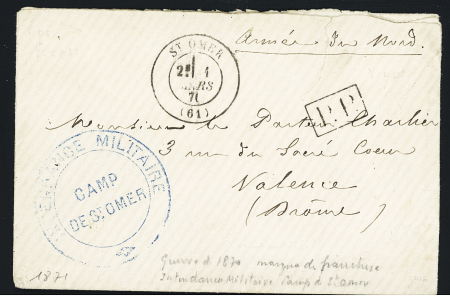 Armée du Nord.
ST OMER
2E 4
MARS
71
(61)
P.P.
Monsieur le Pasteur Charlier
3 rue du Sacré Coeur
Valence
(Drôme)
INTENDANCE MILITAIRE
CAMP
DE ST OMER
Guerre d 1870 marque de franchise
Intendance Militaire Camp d St omer
1871